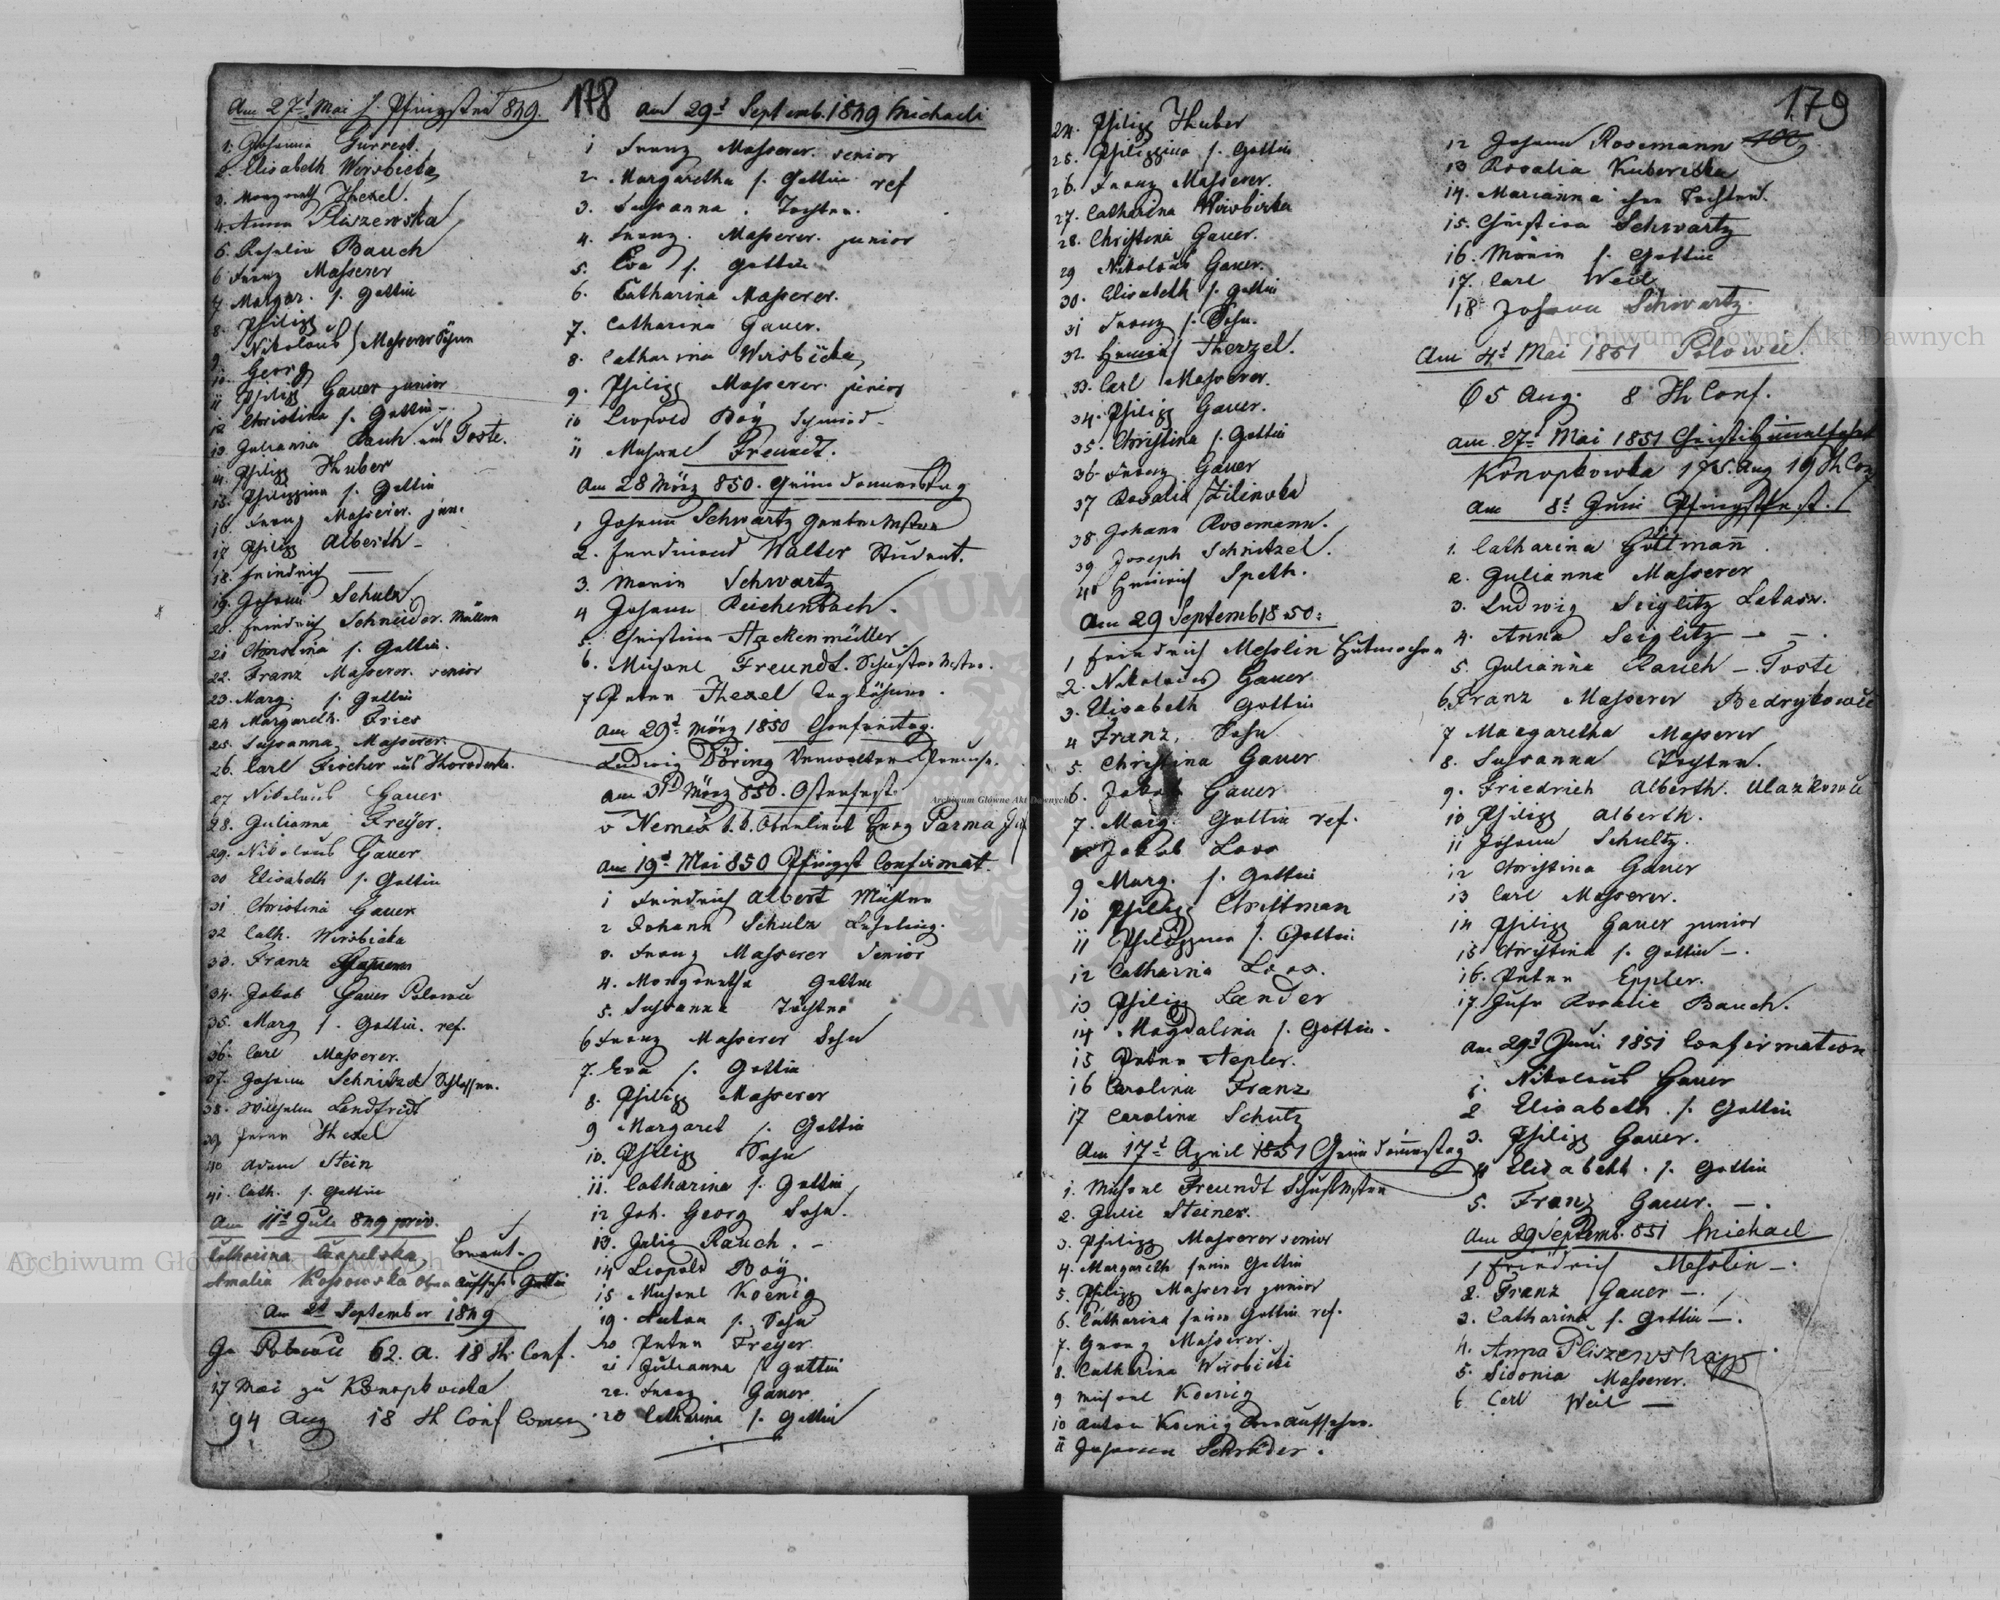 178
Am 27t Mai h. Pfingsten 849.
1. Johanna
2. Elisabeth Wirsbicka
3. Margareth Thexel.
4. Anna Pliszewska
5. Rosalia Bauch
6 Franz Masserer
7 Margar. s. Gattin
8. Philipp
9. Nikolaus } Masserer Söhne
10. Georg
11 Philipp Gauer junior
12 Christina s. Gattin
13. Julianna Rauch aus Toste.
14. Philipp Huber
15. Philippina s. Gattin
16 Franz Masserer. jun.
17 Philipp Alberth
18. Friedrich —
19. Johann Schulz
20. Friedrich Schneider. Müller
21 Christina s. Gattin.
22. Franz Masserer. senior
23. Marg. s. Gattin
24 Margareth. Fries
25. Susanna Masserer.
26. Carl Fischer aus Horodenka.
27 Nikolaus Gauer
28. Julianna Freyer.
29. Nikolaus Gauer
30 Elisabeth s. Gattin
31 Christina Gauer
32 Cath. Wirsbicka
33. Franz Masserer
34. Jakob Gauer Polowce
35. Marg s. Gattin. ref.
36. Carl Masserer.
37. Johann Schnitzel Schlosser.
38. Wilhelm Landfried
39 Peter Thexel
40 Adam Stein
41. Cath. s. Gattin
Am 11t Juli 849 priv.
Catharina Czapelska
Amalia Kossowska Ober Aufsehers Gattin
Am 2t September 1849
In Polowce 62. A. 18 Th. Conf.
17 Mai zu Konopkowka
94 Aug 18 Th Conf
Am 29t Septemb. 1849 Michaeli
1 Franz Masserer. senior
2. Margaretha s. Gattin ref
3. Susanna. Tochter.
4. Franz. Masserer. junior
5. Eva s. Gattin
6. Catharina Masserer.
7. Catharina Gauer.
8. Catharina Wirsbicka
9. Philipp Masserer. junior
10 Leopold Böÿ Schmied
11 Michael Freundt.
Am 28 März 850. Gründonnerstag
1 Johann Schwartz
2. Ferdinand Walter Student.
3. Maria Schwartz
4 Johann Reichenbach.
5. Christina Hackenmüller
6. Michael Freundt. Schuster Mster.
7 Peter Thexel Taglöhner.
Am 29t März 1850 Charfreitag.
Ludwig Döring Verwalter
Am 31t März 850. Osterfest
v Nemes k.k. Oberlieut Herzog Parma
Am 19t Mai 850 Pfingst Confirmat.
1 Friedrich Albert Müller
2 Johann Schulz Lehrling.
3. Franz Masserer Senior
4. Margaretha Gattin
5. Susanna Tochter
6 Franz Masserer Sohn
7. Eva s. Gattin
8. Philipp Masserer
9 Margaret s. Gattin
10. Philipp Sohn
11. Catharina s. Gattin
12 Joh. Georg Sohn.
13. Julia Rauch. –
14 Leopold Böÿ.
15 Michael Koenig
19. Anton s. Sohn
20 Peter Freyer
21 Julianna s. Gattin
22. Franz Gauer
23 Catharina s. Gattin
179
24. Philipp Huber
25. Philippina s. Gattin
26. Franz Masserer.
27. Catharina Wirsbicka
28. Christina Gauer.
29 Nikolaus Gauer.
30. Elisabeth s. Gattin
31 Franz s. Sohn.
32. Heinrich Therzel.
33. Carl Masserer.
34. Philipp Gauer.
35. Christina s. Gattin
36. Franz Gauer
37 Rosalia Zilinska
38. Johann Rosemann.
39 Joseph Schnitzel.
40 Heinrich Speth.
Am 29 Septemb 1850:
1 Friedrich Messlin Hutmacher
2. Nikolaus Gauer
3. Elisabeth Gattin
4 Franz. Sohn
5. Christina Gauer
6. Jakob Gauer
7. Marg. Gattin ref.
8 Jakob Loos
9 Marg. s. Gattin
10 Philipp Christman
11 Philippina s. Gattin
12 Catharina Loos.
13 Philipp Lander
14 Magdalina s. Gattin.
15 Peter Aepler.
16 Carolina Franz
17 Carolina Schutz
Am 17t April 1851 Gründonnerstag
1. Michael Freundt Schust Mster
2. Julie Steiner.
3. Philipp Masserer senior
4. Margareth seine Gattin
5. Philipp Masserer junior
6. Catharina seine Gattin ref.
7. Georg Masserer.
8. Catharina Wirsbicki
9 Michael Koenig
10 Anton Koenig Oberaufseher.
11 Johann Schrader.
12 Johann Rosemann
13 Rosalia Kubericka
14. Marianna ihre Tochter.
15. Christina Schwartz
16. Maria s. Gattin
17. Carl Weil
18 Johann Schwartz.
Am 4t Mai 1851 Polowce.
65 Aug. 8 Th Conf.
Am 27t Mai 1851 Christi Himmelfahrt
Konopkowka 175. Aug 19 Th Conf
Am 8t Juni Pfingstfest.
1. Catharina Guttmann
2. Julianna Masserer
3. Ludwig Seiglitz
4. Anna Seiglitz – –.
5. Julianna Rauch – Toste
6. Franz Masserer Bedrykowce
7 Margaretha Masserer
8. Susanna Tochter.
9. Friedrich Alberth. Ulazkowce
10 Philipp Alberth.
11 Johann Schultz.
12 Christina Gauer
13 Carl Masserer.
14 Philipp Gauer junior
15 Christina s. Gattin –.
16. Peter Eppler.
17. Rosalie Bauch.
Am 29t Juni 1851 Confirmation
1. Nikolaus Gauer
2 Elisabeth s. Gattin
3. Philipp Gauer.
4 Elisabeth. s. Gattin
5. Franz Gauer. –.
Am 29 Septemb. 851 Michael
1 Friedrich Messlin –.
2. Franz Gauer –.
3. Catharina s. Gattin –.
4. Anna Pliszewska
5. Sidonia Masserer.
6 Carl Weil —
Archiwum Główne Akt Dawnych
Archiwum Główne Akt Dawnych
Archiwum Główne Akt Dawnych